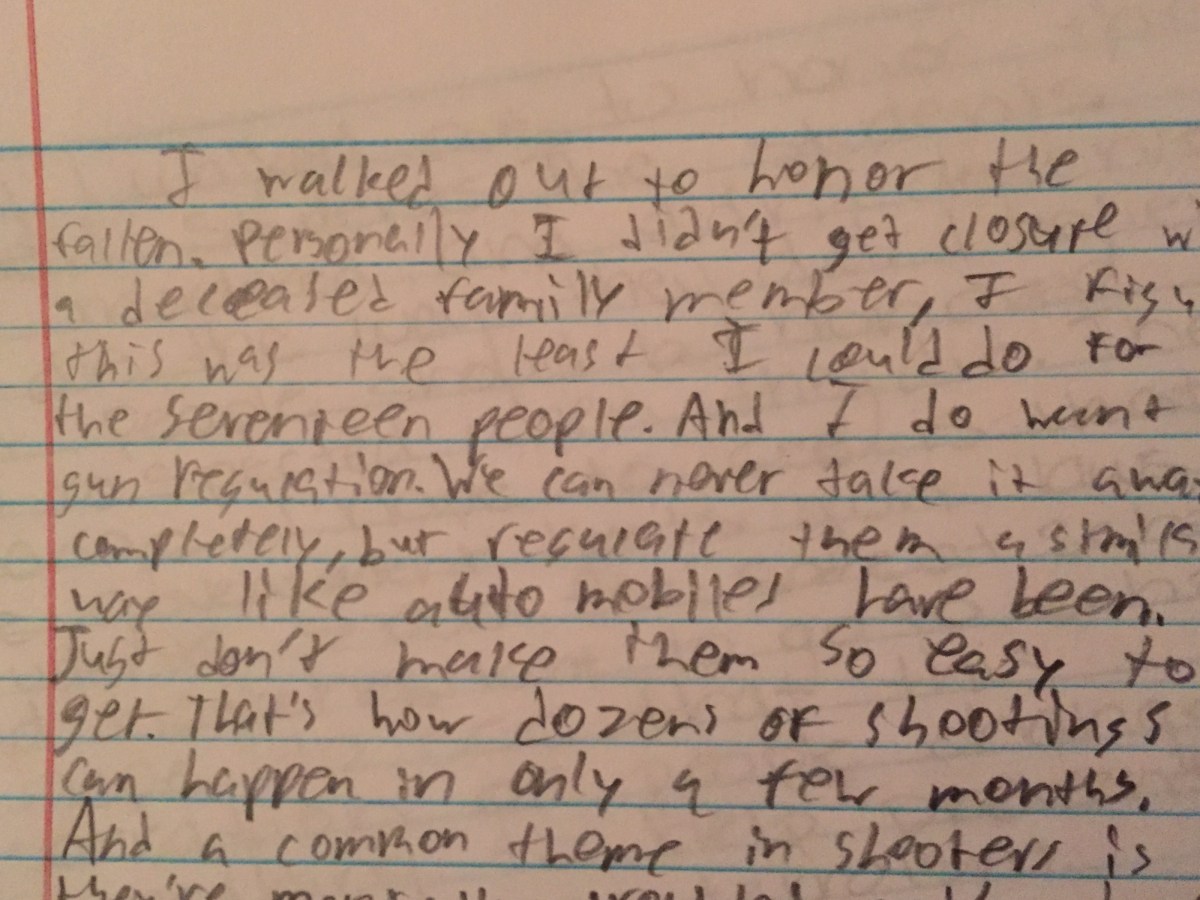 I walked out to honor the
fallen. Personally I didn't get closure wi
a deceased family member, I figu
this was the least I could do for
the seventeen people. And I do want
gun reguration. We can never take it awa
completely, but regurate them a simila
way like automobiles have been.
Just don't make them so easy to
get. That's how dozens of shootings
can happen in only a few months.
And a common theme in shooters is
they're